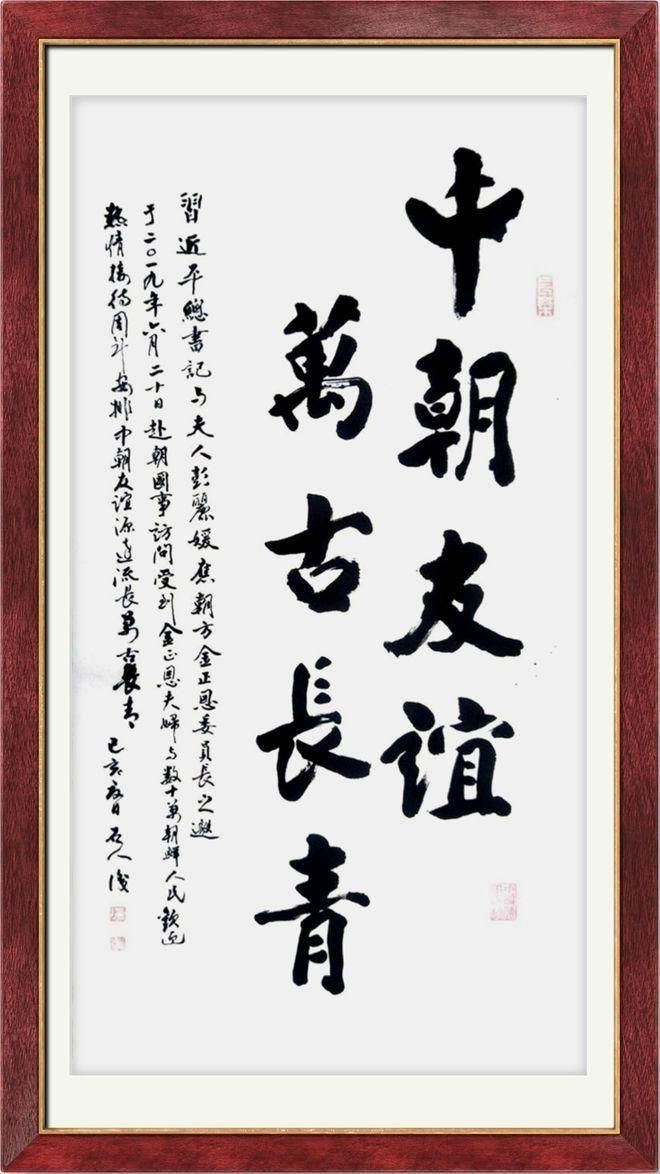 中朝友誼
萬古長青
習近平總書記与夫人彭麗媛應朝方金正恩委員長之邀
于二〇一九年六月二十日赴朝國事訪問受到金正恩夫婦与数十萬朝鮮人民歡迎
熱情接待周到安排中朝友誼源遠流長萬古長青 己亥夏日 石人